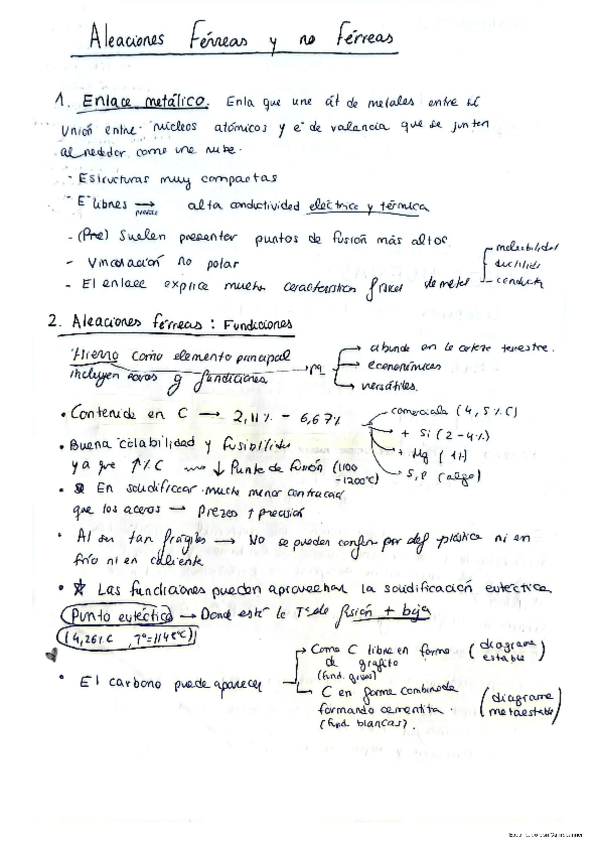 Aleaciones Férreas y no Férreas
1. Enlace metálico. Enla que une át de metales entre sí
Unión entre núcleos atómicos y e⁻ de valencia que se junten
alrededor como una nube.
- Estructuras muy compactas
- E⁻ libres → alta conductividad eléctrica y térmica
- (Pre) Suelen presentar puntos de fusión más altos
- Vinculación no polar
- El enlace explica muchas características físicas de metal
- maleabilidad
- ductilidad
- conducti
2. Aleaciones férreas: Fundiciones
Hierro como elemento principal
incluyen aceros y fundiciones
pq
→ abunda en la corteza terrestre.
→ económicas
→ versátiles.
• Contenido en C → 2,11% - 6,67%
comerciales (4,5% C)
+ Si (2-4%)
+ Mg (1%)
S, P (algo)
• Buena colabilidad y fusibilidad
ya que ↑% C ↓ Punto de fusión (1100
-1200°C)
• En solidificar mucha menor contracción
que los aceros → Piezas ↑ precisión
• Al ser tan frágiles → No se pueden confor por def plástica ni en
frío ni en caliente
• ☆ Las fundiciones pueden aprovechar la solidificación eutéctica
Punto eutéctico → Donde está la T° de fusión + baja
(4,26% C, T°=1148°C)
• El carbono puede aparecer
→ Como C libre en forma
de grafito
(fund. grises)
(diagrama
estable)
→ C en forma combinada
formando cementita
(fund. blancas).
(diagrama
metaestable)